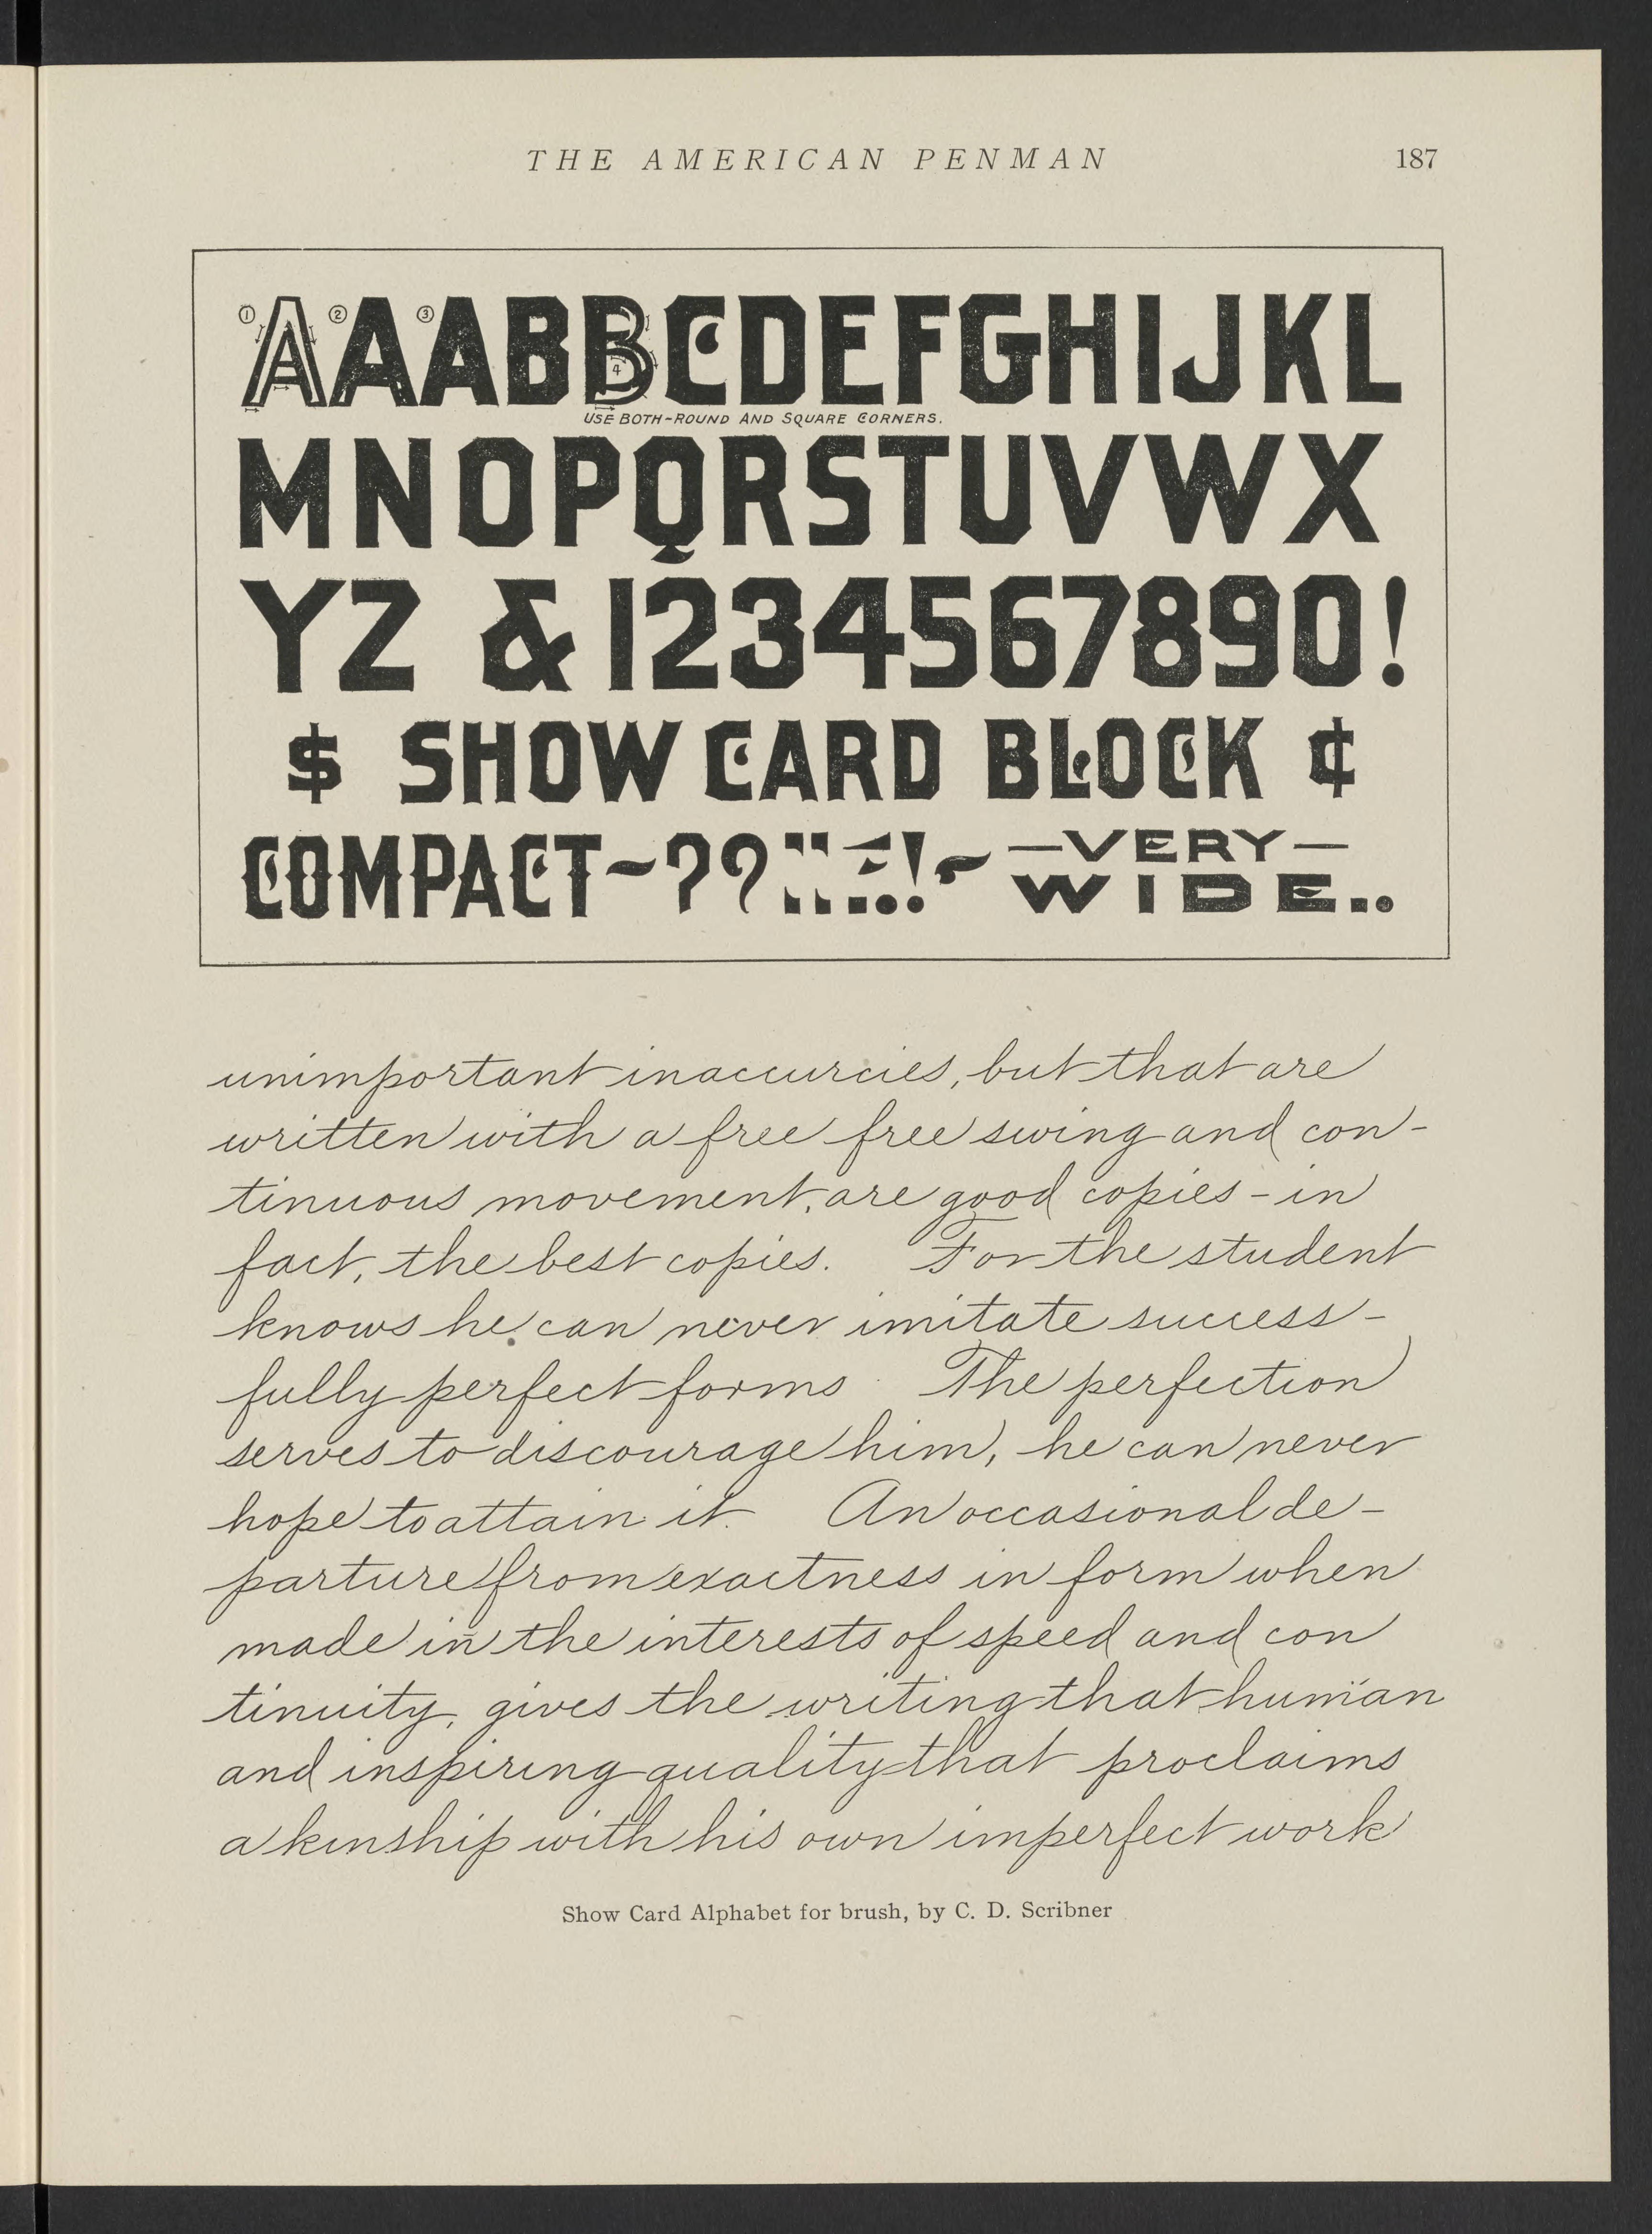 THE AMERICAN PENMAN 187
① A ② A ③ A B B C D E F G H I J K L
4
USE BOTH-ROUND AND SQUARE CORNERS.
M N O P Q R S T U V W X
Y Z & 1 2 3 4 5 6 7 8 9 0 !
$ SHOW CARD BLOCK ¢
COMPACT ~ ? ? ! -VERY-
WIDE..
unimportant inaccurcies, but that are
written with a free free swing and con-
tinuous movement, are good copies - in
fact, the best copies. For the student
knows he can never imitate success-
fully perfect forms. The perfection
serves to discourage him, he can never
hope to attain it. An occasional de-
parture from exactness in form when
made in the interests of speed and con
tinuity, gives the writing that human
and inspiring quality that proclaims
a kinship with his own imperfect work
Show Card Alphabet for brush, by C. D. Scribner